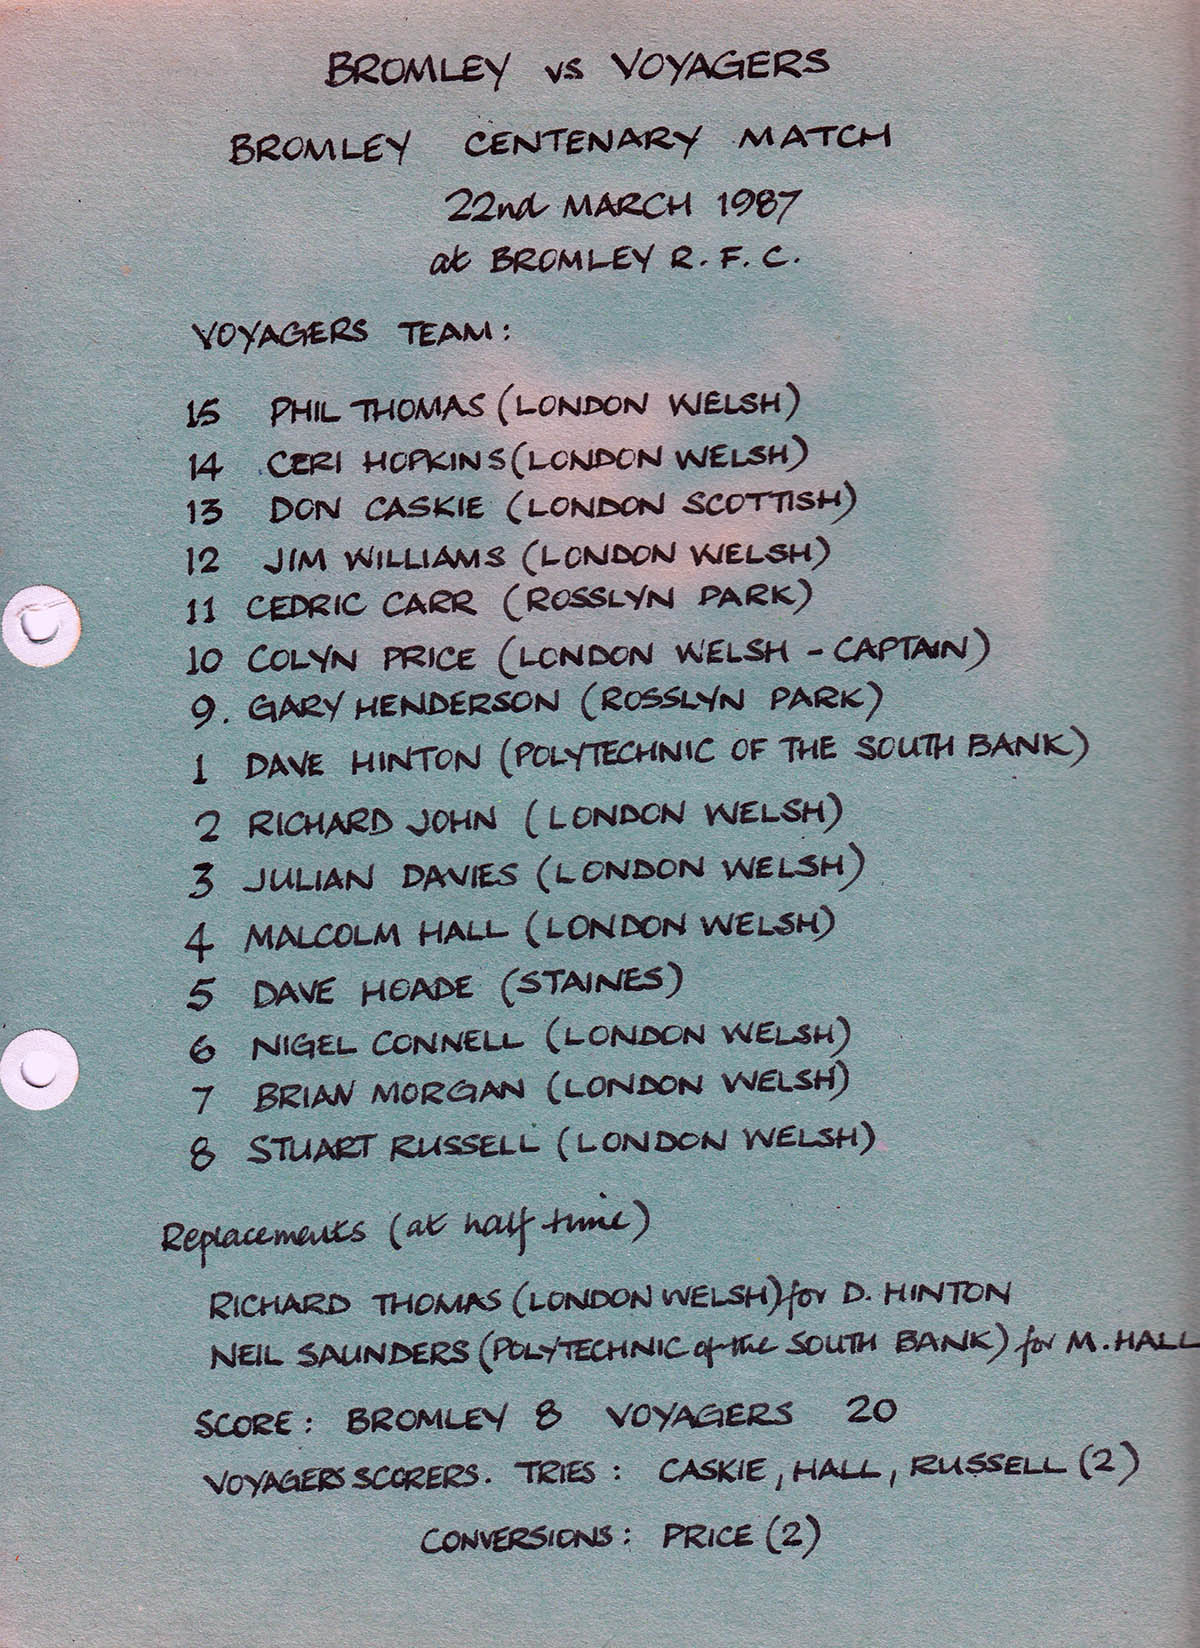 BROMLEY vs VOYAGERS
BROMLEY CENTENARY MATCH
22nd MARCH 1987
at BROMLEY R. F. C.
VOYAGERS TEAM:
15 PHIL THOMAS (LONDON WELSH)
14 CERI HOPKINS (LONDON WELSH)
13 DON CASKIE (LONDON SCOTTISH)
12 JIM WILLIAMS (LONDON WELSH)
11 CEDRIC CARR (ROSSLYN PARK)
10 COLYN PRICE (LONDON WELSH - CAPTAIN)
9. GARY HENDERSON (ROSSLYN PARK)
1 DAVE HINTON (POLYTECHNIC OF THE SOUTH BANK)
2 RICHARD JOHN (LONDON WELSH)
3 JULIAN DAVIES (LONDON WELSH)
4 MALCOLM HALL (LONDON WELSH)
5 DAVE HOADE (STAINES)
6 NIGEL CONNELL (LONDON WELSH)
7 BRIAN MORGAN (LONDON WELSH)
8 STUART RUSSELL (LONDON WELSH)
Replacements (at half time)
RICHARD THOMAS (LONDON WELSH) for D. HINTON
NEIL SAUNDERS (POLYTECHNIC of the SOUTH BANK) for M. HALL
SCORE: BROMLEY 8 VOYAGERS 20
VOYAGERS SCORERS. TRIES: CASKIE, HALL, RUSSELL (2)
CONVERSIONS: PRICE (2)